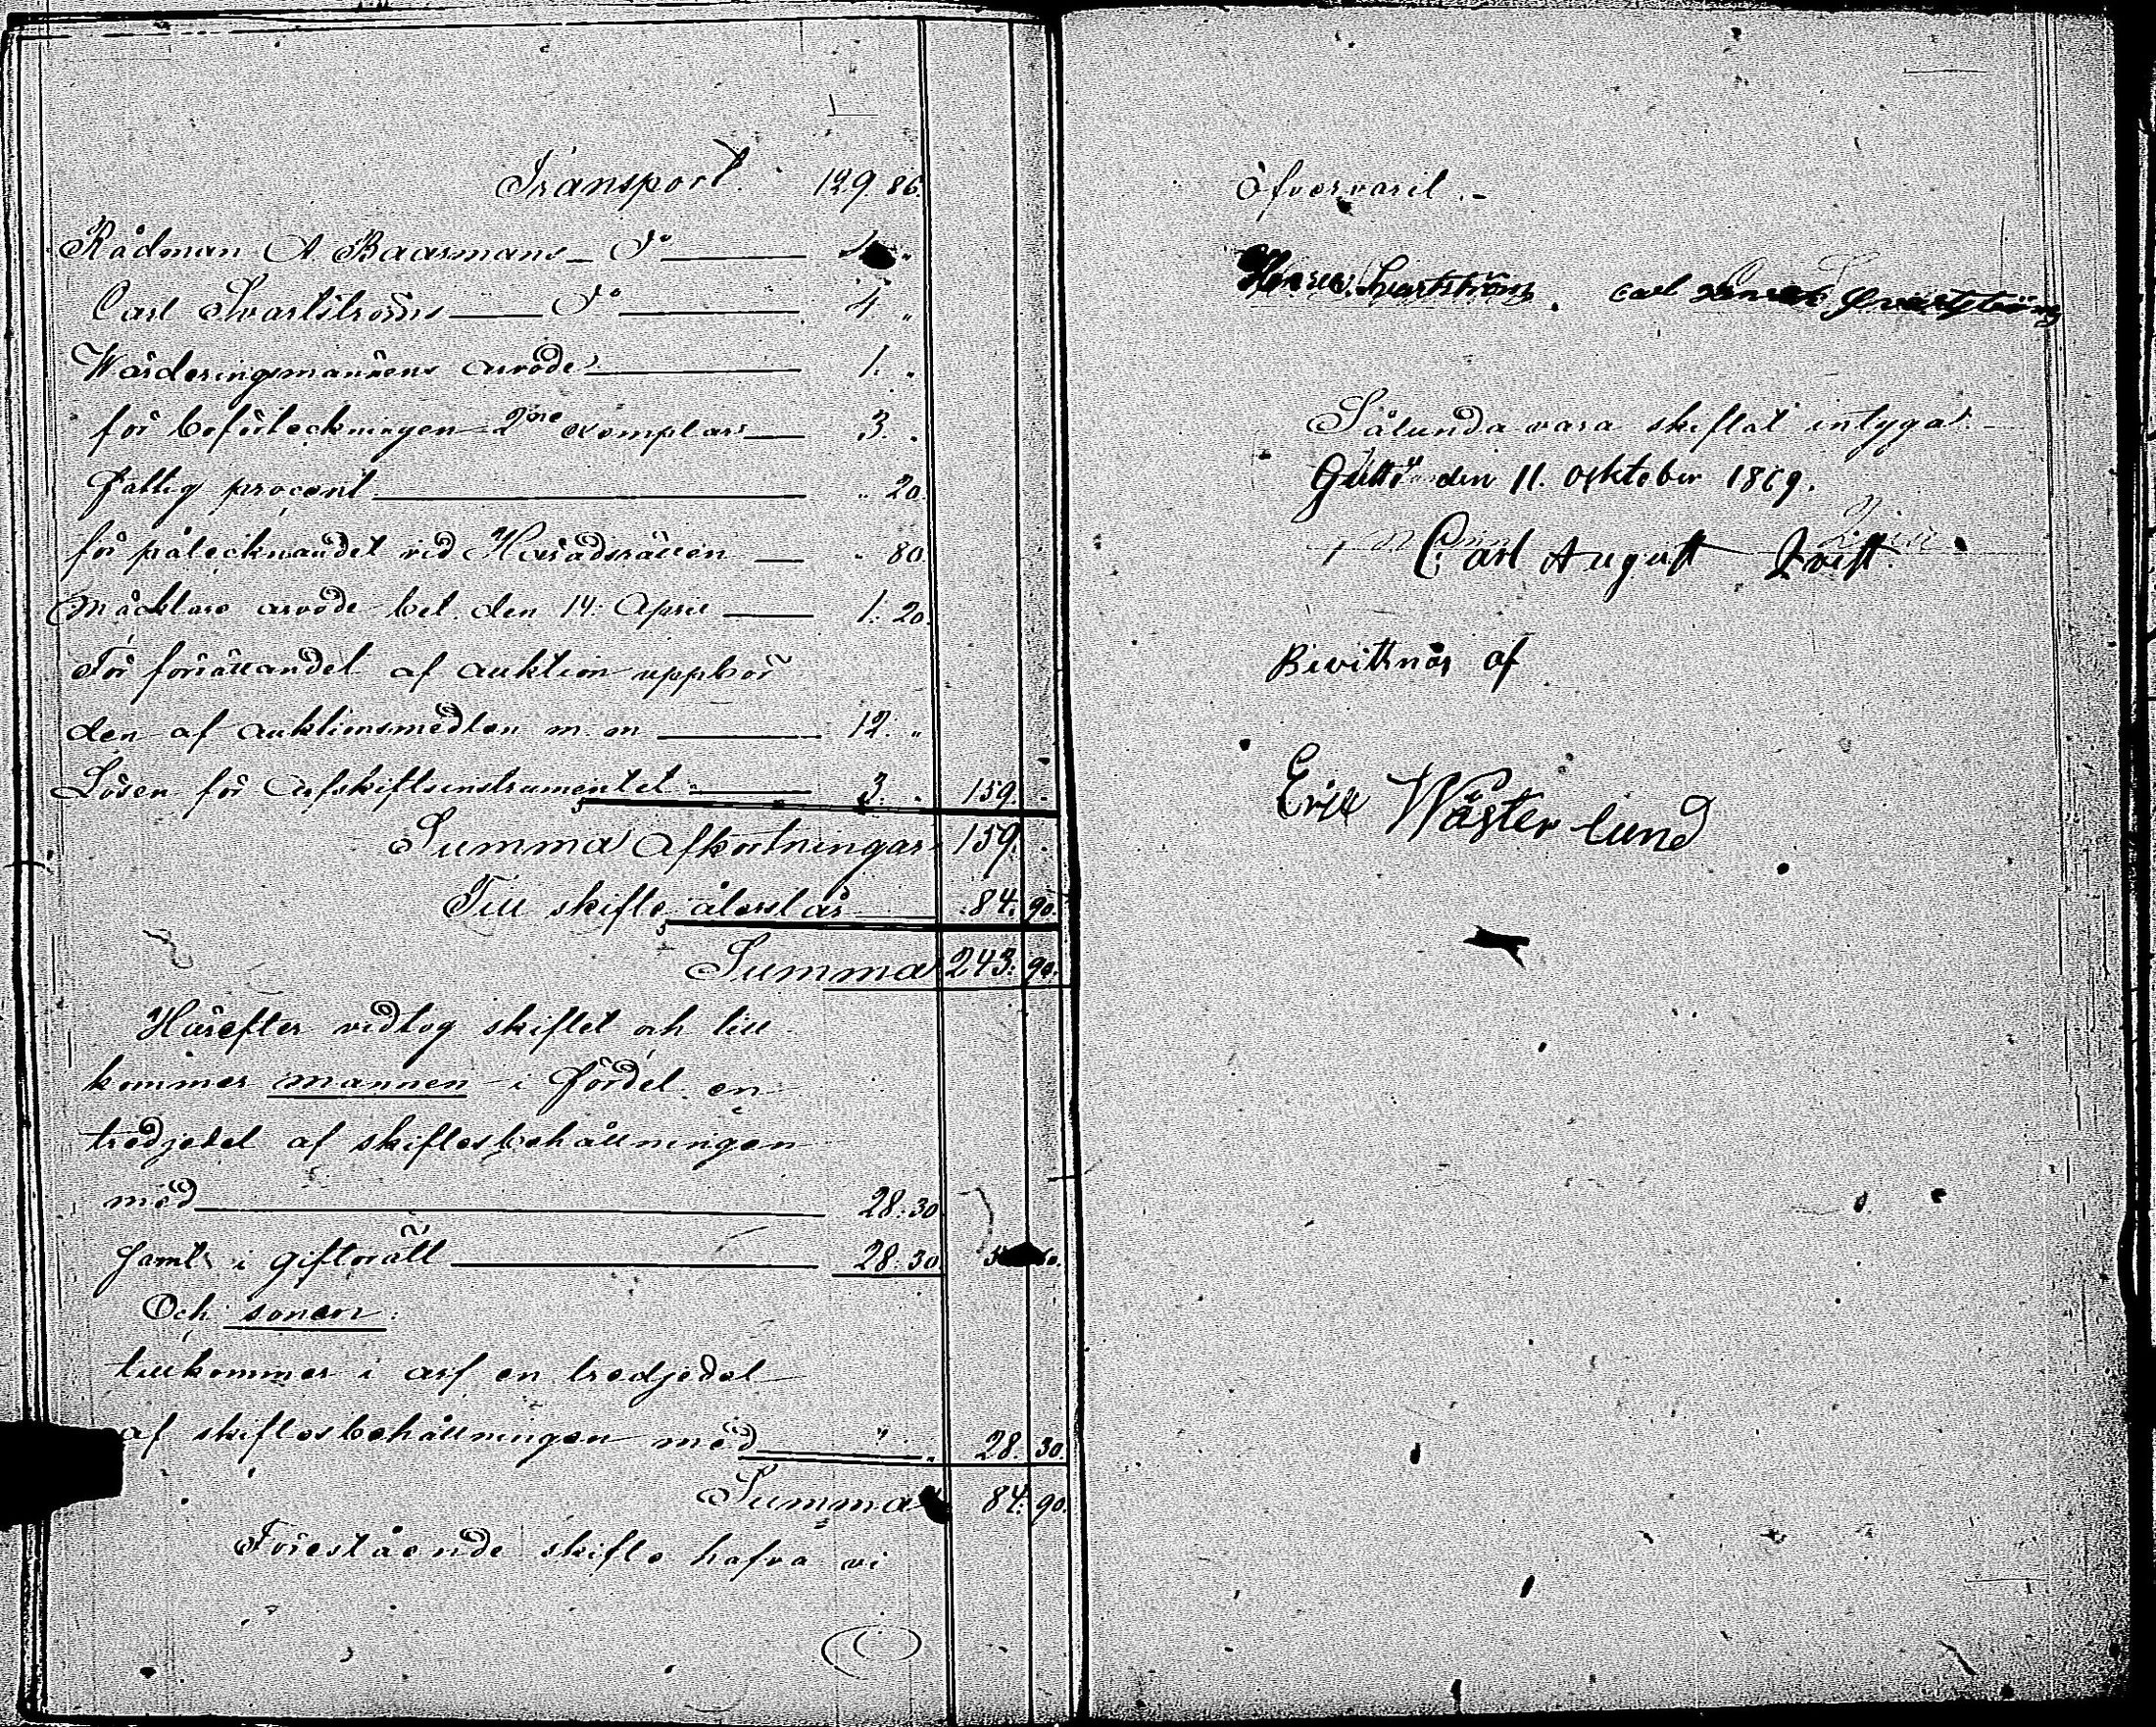 Transport. 129 86.
Rådman A Baarmans – Do 4 „
Carl Svartströms Do 4 „
Wärderingsmännens arvode 1. „
för boförteckningen 2ne exemplar 3. „
Fattig procent „ 20.
för påtecknandet vid Häradsrätten „ 80.
Mäcklare arvode bet. den 14. April 1. 20.
För förrättandet af auktion uppbör
den af auktionsmedlen m. m 12. „
Lösen för Afskiftsinstrumentet 3. „ 159. „
Summa Afkortningar 159. „
Till skifte återstår 84. 90.
Summa 243. 90.
Härefter vidtog skiftet och till
kommer mannen i fördel en
tredjedel af skiftesbehållningen
med 28. 30
samt i giftorätt 28. 30 60.
Och sonen
tillkommer i arf en tredjedel
af skiftesbehållningen med „ 28. 30.
Summa 84. 90.
Förestående skifte hafva vi
öfvervarit. –
Svartström. Carl Svartström
Sålunda vara skiftat intygar. –
den 11. Oktober 1869.
Carl August Qvist.
Bevittnas af
Erik Wästerlund